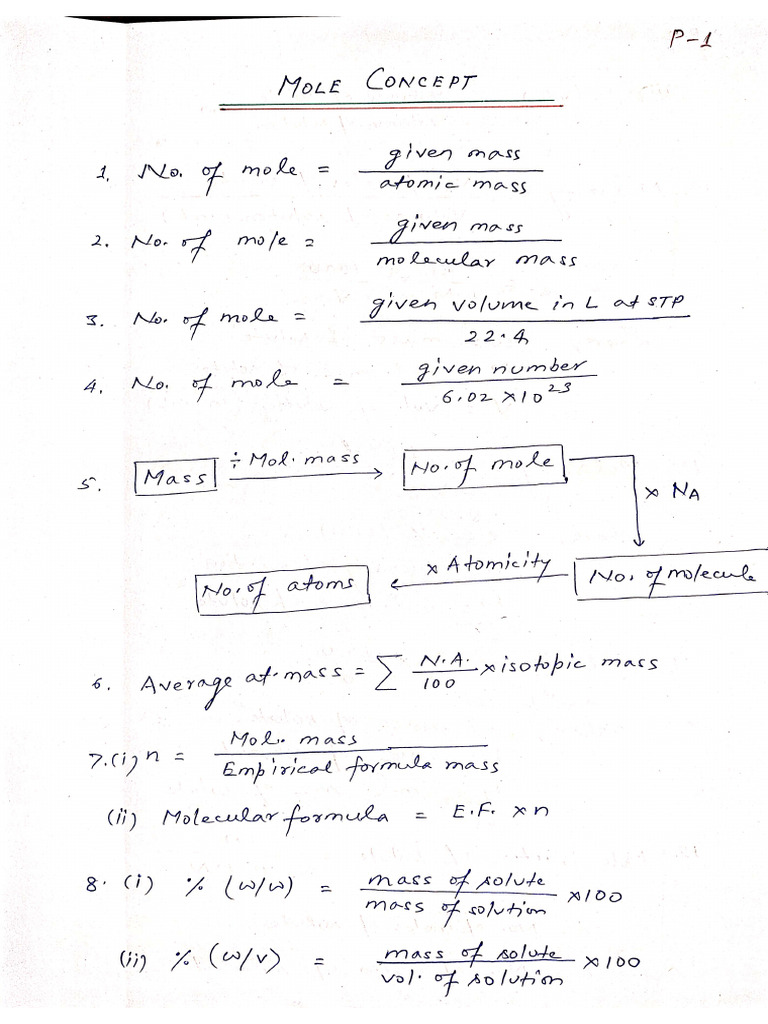 P-1
MOLE CONCEPT
1. No. of mole = given mass / atomic mass
2. No. of mole = given mass / molecular mass
3. No. of mole = given volume in L at STP / 22.4
4. No. of mole = given number / 6.02 × 10²³
5. Mass ÷ Mol. mass → No. of mole
× NA
No. of atoms ← × Atomicity No. of molecule
6. Average at. mass = ∑ N.A./100 × isotopic mass
7. (i) n = Mol. mass / Empirical formula mass
(ii) Molecular formula = E.F. × n
8. (i) % (w/w) = mass of solute / mass of solution × 100
(ii) % (w/v) = mass of solute / vol. of solution × 100